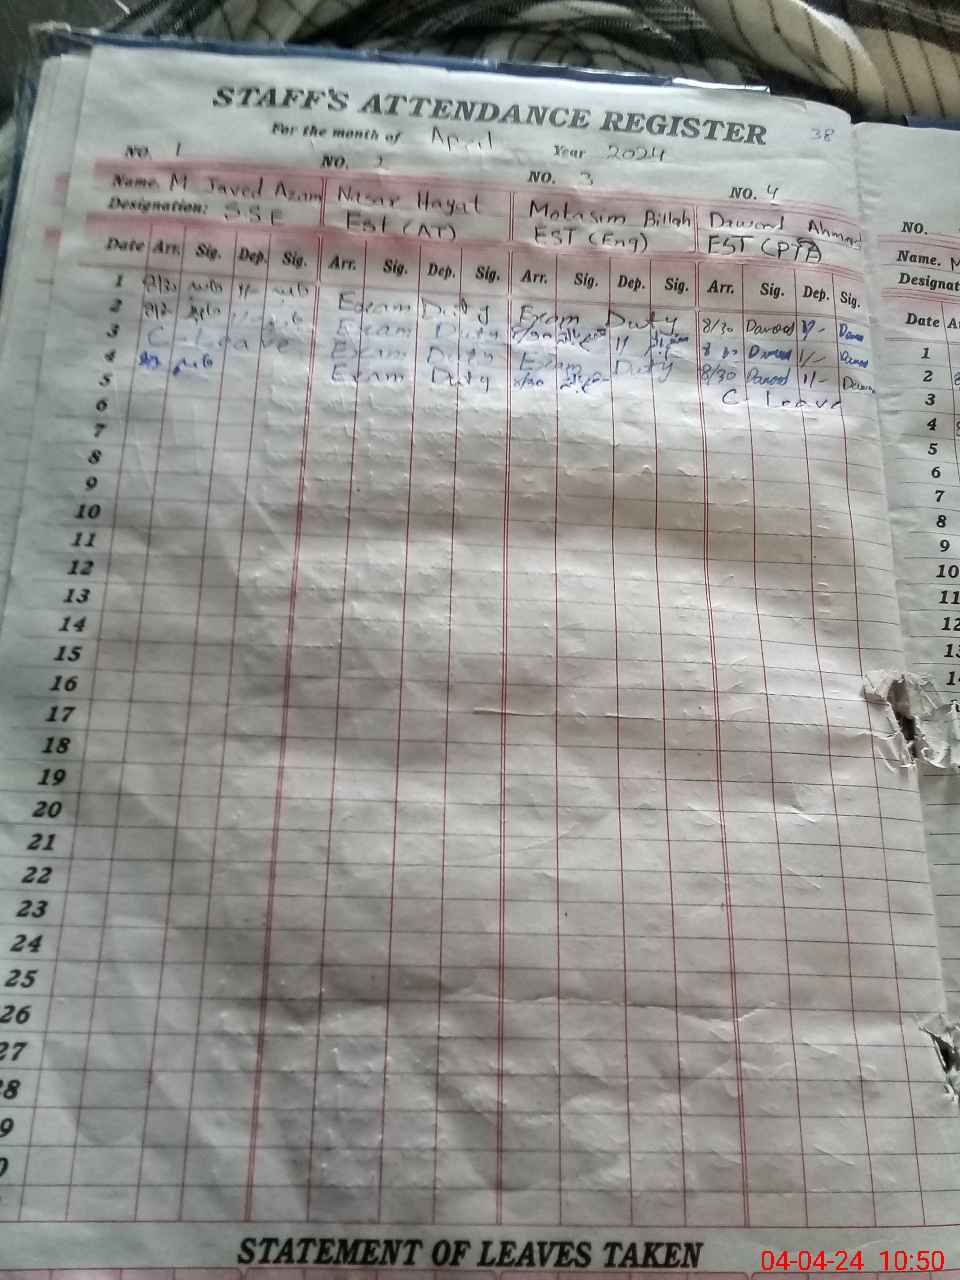 STAFF'S ATTENDANCE REGISTER
For the month of April Year 2024 38
NO. 1 NO. 2 NO. 3 NO. 4 NO.
Name. M Javed Azam Nisar Hayat Motasim Billah Dawood Ahmad Name. M
Designation: SSE EST (AT) EST (Eng) EST (PTA) Designat
Date Arr. Sig. Dep. Sig. Arr. Sig. Dep. Sig. Arr. Sig. Dep. Sig. Arr. Sig. Dep. Sig. Date A
1 8/30 1/- Exam Duty Exam Duty 8/30 Dawood 1/- 1
2 8/30 1/- Exam Duty 8/30 1/- 8/30 Dawood 1/- 2
3 C. Leave Exam Duty Exam Duty 8/30 Dawood 1/- 3
4 Exam Duty 8/30 C. Leave 4
5 5
6 6
7 7
8 8
9 9
10 10
11 11
12 12
13 13
14
15
16
17
18
19
20
21
22
23
24
25
26
27
STATEMENT OF LEAVES TAKEN
04-04-24 10:50